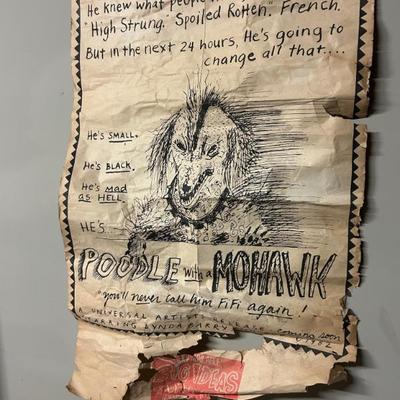 He knew what people
"High Strung." "Spoiled Rotten." French.
But in the next 24 hours, He's going to
change all that....
He's SMALL.
He's BLACK.
He's mad
as HELL.
HE'S
POODLE with a MOHAWK
"you'll never call him FiFi again!"
A UNIVERSAL ARTISTS
STARRING LYNDA BARRY
coming soon
BIG IDEAS